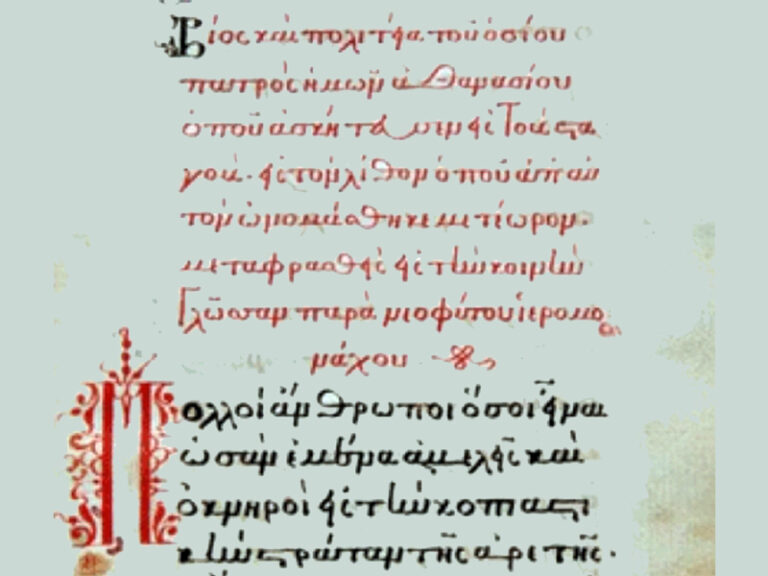 Βίος καὶ πολιτεία τοῦ ὁσίου
πατρὸς ἡμῶν ἀθανασίου
ὁποῦ ἀσκήτευσεν εἰς τοὺς στα
γούς· εἰς τὸν λίθον ὁποῦ ἀπ' αὐ
τὸν ὠνομάσθηκε μετέωρον·
μεταφρασθεὶς εἰς τὴν κοινὴν
Γλῶσσαν παρὰ νεοφύτου ἱερομο
νάχου
Πολλοὶ ἄνθρωποι ὅσοι εἶναι
ὡσὰν ἐμένα ἀμελεῖς καὶ
ὀκνηροὶ εἰς τὴν κοπιαστι
κὴν στράταν τῆς ἀρετῆς·